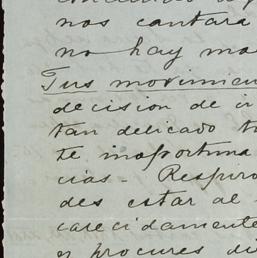 nos cantara
no hay ma
Tus movimien
decision de ir
tan delicado t
te inoportuna
cias - Respiro
des estar al
carecidamente
y procures di